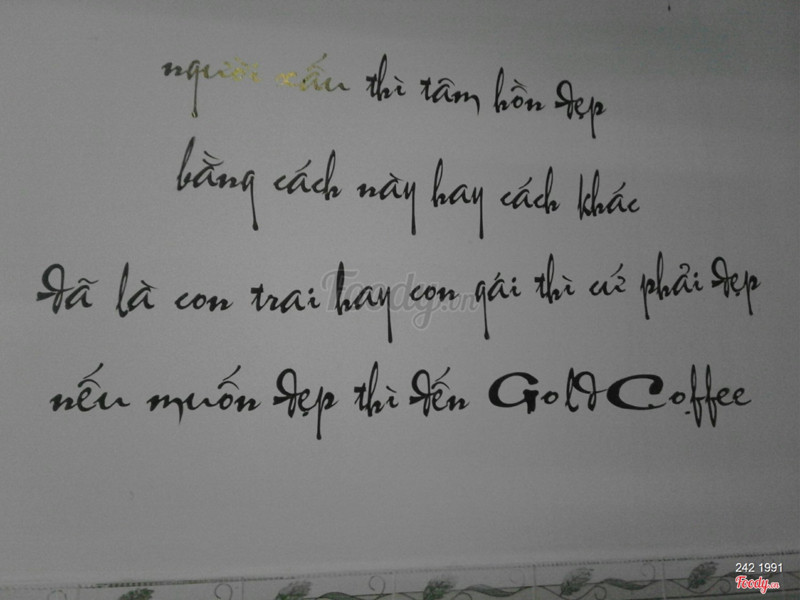 người xấu thì tâm hồn đẹp
bằng cách này hay cách khác
đã là con trai hay con gái thì cứ phải đẹp
nếu muốn đẹp thì đến Gold Coffee
Foody.vn
242 1991
Foody.vn